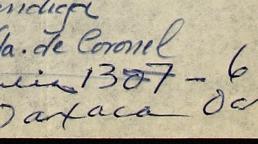 da. de Coronel
1307 - 6
Oaxaca Oa